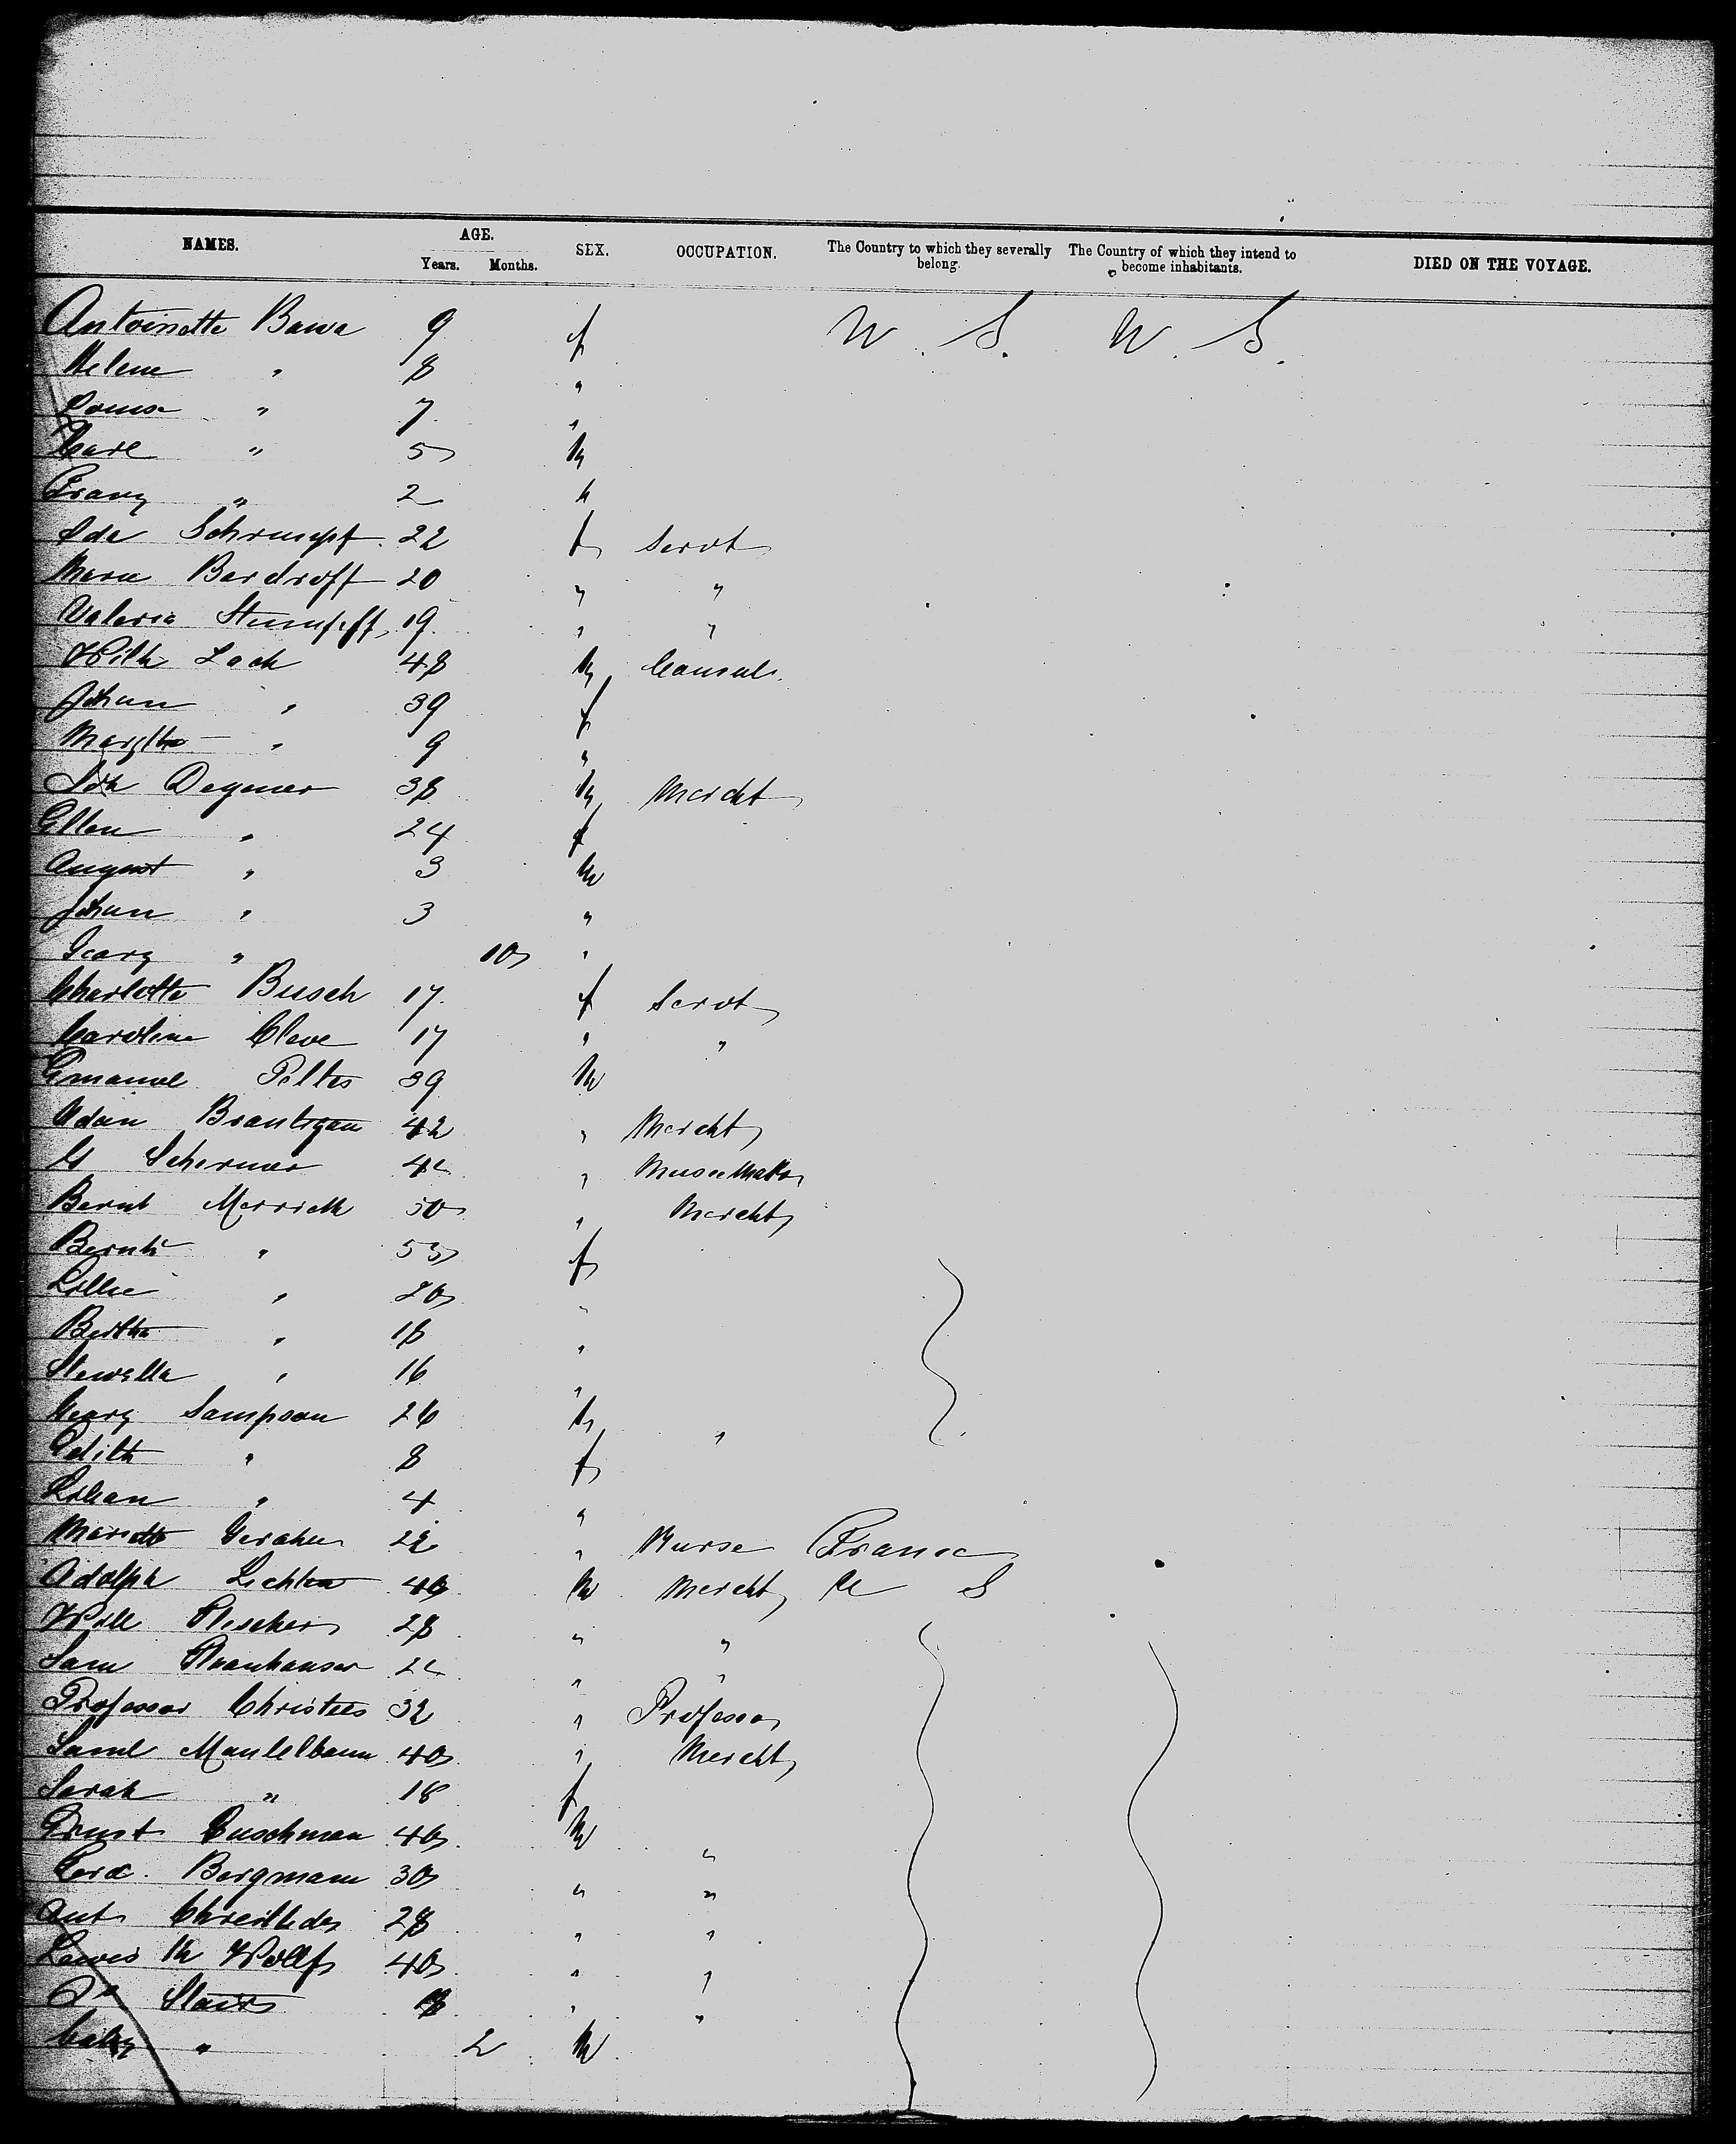 NAMES. AGE. SEX. OCCUPATION. The Country to which they severally belong. The Country of which they intend to become inhabitants. DIED ON THE VOYAGE.
Years. Months.
Antoinette Bawa 9 f U. S. U. S.
Helene " 8 "
Louise " 7 "
Carl " 5 M
Franz " 2 "
Ida Schrumpf 22 f Servt
Marie Bardroff 20 " "
Valeria Stumpff 19 " "
Wilh Lach 48 M Consul
Johan " 39 f
Margtha " 9 "
Joh Degener 38 M Mercht
Ellen " 24 f
August " 3 M
Johan " 3 "
Georg " 10 "
Charlotte Busch 17 f Servt
Caroline Cleve 17 " "
Emanuel Peltes 39 M
Adam Brautigan 42 " Mercht
G Schirmer "
Bernh Merrick 50 " Mercht
" 55 f
Lillie " 20 "
Bertha " 18 "
" 16 "
Henry Sampson 26 M "
Edith " 8 f
Lilian " 4 "
22 " Nurse France
Adolph Lichten 40 M Mercht U S
Will Flescher 28 " "
Sam " "
Professor Christees 32 " Professor
Saml Mandelbaum 40 " Mercht
Sarah " 18 f
Ernst Buschman 40 M "
Ferd. Bergmann 30 " "
Ant 28 " "
Lewis M Wolff 40 " "
Stairs " "
baby " 2 M